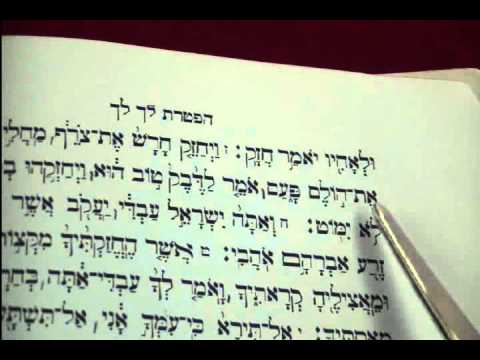 הפטרת לך לך
וּלְאָחִ֖יו יֹאמַ֥ר חֲזָֽק׃ ז וַיְחַזֵּ֤ק חָרָשׁ֙ אֶת־צֹרֵ֔ף, מַֽחֲלִ֥י
אֶת־ה֣וֹלֶם פָּ֑עַם, אֹמֵ֤ר לַדֶּ֙בֶק֙ ט֣וֹב ה֔וּא, וַיְחַזְּקֵ֥הוּ בְ
לֹ֥א יִמּֽוֹט׃ ח וְאַתָּה֙ יִשְׂרָאֵ֣ל עַבְדִּ֔י, יַֽעֲקֹ֖ב אֲשֶׁ֣ר
זֶ֖רַע אַבְרָהָ֥ם אֹֽהֲבִֽי׃ ט אֲשֶׁ֤ר הֶֽחֱזַקְתִּ֙יךָ֙ מִקְצ֣וֹת
וּמֵֽאֲצִילֶ֖יהָ קְרָאתִ֑יךָ, וָאֹ֤מַר לְךָ֙ עַבְדִּי־אַ֔תָּה, בְּחַרְ
מְאַסְתִּֽיךָ׃ י אַל־תִּירָא֙ כִּֽי־עִמְּךָ֣ אָ֔נִי, אַל־תִּשְׁתָּ֖